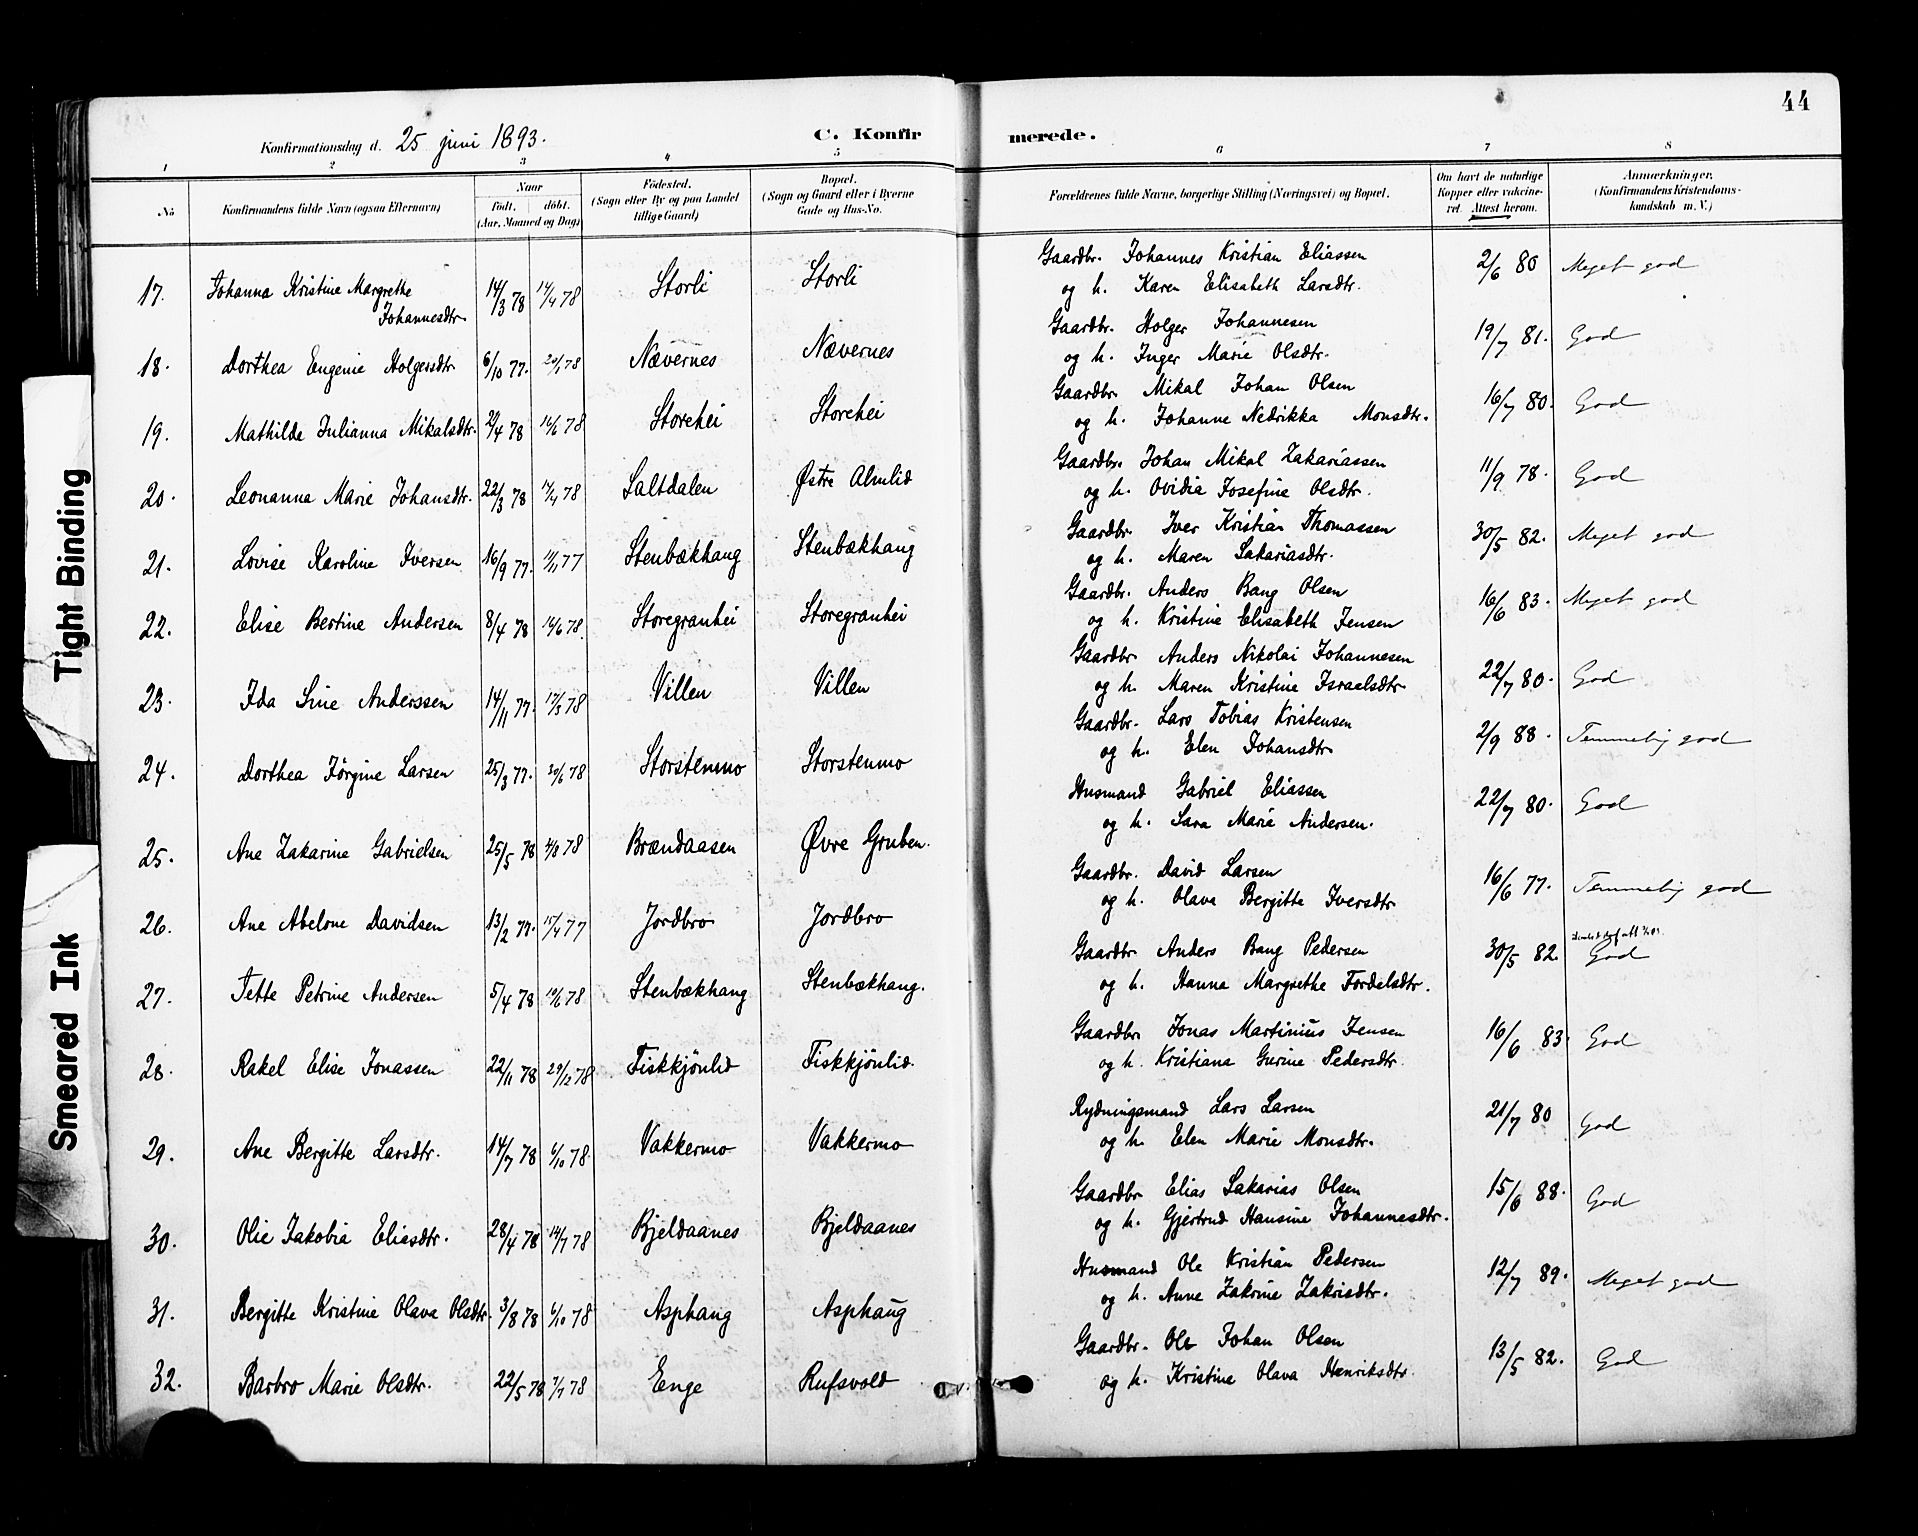 44
Konfirmationsdag d. 25 juni 1893.
C. Konfirmerede.
1 2 3 4 5 6 7 8
No
Konfirmandens fulde Navn (ogsaa Efternavn)
Naar
født. døbt.
(Aar, Maaned og Dag)
Fødested.
(Sogn eller By og paa Landet
tillige Gaard)
Bopæl.
(Sogn og Gaard eller i Byerne
Gade og Hus-No.
Forældrenes fulde Navne, borgerlige Stilling (Næringsvei) og Bopæl.
Om havt de naturlige
Kopper eller vakcine-
ret. Attest herom.
Anmærkninger.
(Konfirmandens Kristendoms-
kundskab m. V.)
17. Johanna Kristine Margrethe Johannesdtr. 14/3 78 14/4 78 Storli Storli Gaardbr. Johannes Kristian Eliassen 2/6 80 Meget god
og h. Karen Elisabeth Larsdtr.
18. Dorthea Eugenie Holgersdtr 6/10 77. 20/1 78 Nævernes Nævernes Gaardbr. Holger Johannesen 19/7 81. God
og h. Inger Marie Olsdtr.
19. Mathilde Julianna Mikalsdtr. /4 78 16/6 78 Storehei Storehei Gaardbr. Mikal Johan Olsen 16/7 80. God
og h. Johanne Nedrikka Monsdtr.
20. Leonanna Marie Johansdtr. 22/3 78 14/4 78 Saltdalen Østre Almlid Gaardbr. Johan Mikal Zakariassen 11/9 78. God
og h. Ovidia Josefine Olsdtr.
21. Lovise Karoline Iversen 16/9 77. 11/11 77 Stenbækhaug Stenbækhaug Gaardbr. Iver Kristian Thomassen 30/5 82. Meget god
og h. Maren Sakariasdtr.
22. Elise Bertine Andersen 8/4 78 16/6 78. Storegranhei Storegranhei Gaardbr. Anders Bang Olsen 16/6 83. Meget god
og h. Kristine Elisabeth Jensen
23. Ida Sine Anderssen 14/11 77. 17/3 78 Villen Villen Gaardbr Anders Nikolai Johannesen 22/7 80. God
og h. Maren Kristine Israelsdtr
24. Dorthea Jörgine Larsen 25/3 77. 20/6 78 Storstenmo Storstenmo Gaardbr. Lars Tobias Kristensen 2/9 88. Temmelig god
og h. Elen Johansdtr
25. Ane Zakarine Gabrielsen 25/5 78 /8 78 Brændaasen Øvre Gruben. Husmand Gabriel Eliassen 22/7 80. God
og h. Sara Marie Andersen.
26. Ane Abelone Davidsen 13/2 77. 15/4 77 Jordbro Jordbro Gaardbr. David Larsen 16/6 77. Temmelig god
og h. Olava Bergitte Iversdtr
27. Jette Petrine Andersen 5/4 78 10/6 78 Stenbækhaug Stenbækhaug. Gaardbr Anders Bang Pedersen 30/5 82. God
og h. Hanna Margrethe Fordelsdtr.
28. Rakel Elise Jonassen 22/11 78 29/12 78 Fiskkjönlid Fiskkjönlid. Gaardbr Jonas Martinius Jensen 16/6 83. God
og h. Kristiana Gurine Pedersdtr.
29. Ane Bergitte Larsdtr. 14/7 78 6/10 78. Vakkermo Vakkermo Rydningsmand Lars Larsen 21/7 80 God
og h. Elen Marie Monsdtr.
30. Olie Jakobia Eliasdtr. 28/4 78 14/7 78 Bjeldaanes Bjeldaanes Gaardbr Elias Sakarias Olsen 15/6 88. God
og h. Gjertrud Hansine Johannesdtr.
31. Bergitte Kristine Olava Olsdtr. 3/8 78 6/10 78 Asphaug Asphaug Husmand Ole Kristian Pedersen 12/7 89. Meget god
og h. Anne Zakrine Zakrisdtr.
32. Barbro Marie Olsdtr. 22/5 78 7/7 78 Enge Rufsvold Gaardbr. Ole Johan Olsen 13/5 82. God
og h. Kristine Olava Henriksdtr
Tight Binding
Smeared Ink